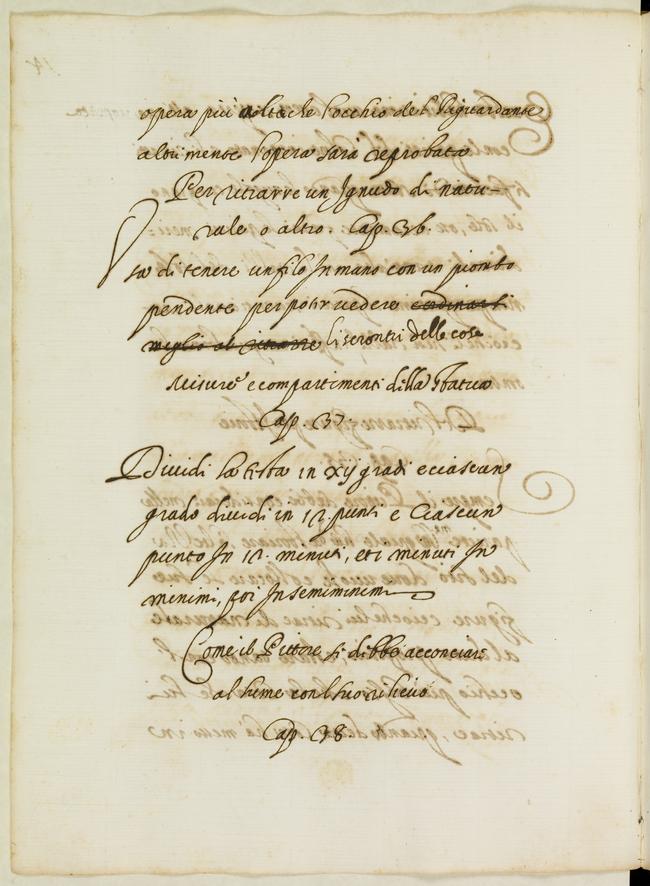 opera più volte che l'occhio de l' riguardante
altrimente l'opera sarà reprobata
Per ritrarre un Ignudo di natu-
rale o altro. Cap. 36.
Usa di tenere un filo In mano con un piombo
pendente per poter vedere
meglio al ritrarre li scontri delle cose
Misure e compartimenti della statua
Cap. 37.
Dividi la testa in xij gradi e ciascun
grado dividi in 12. punti e Ciascun
punto In 12. minuti, et i minuti In
minimi, poi In semiminimi
Come il Pittore si debbe acconciare
al lume con l suo rilievo
Cap. 38